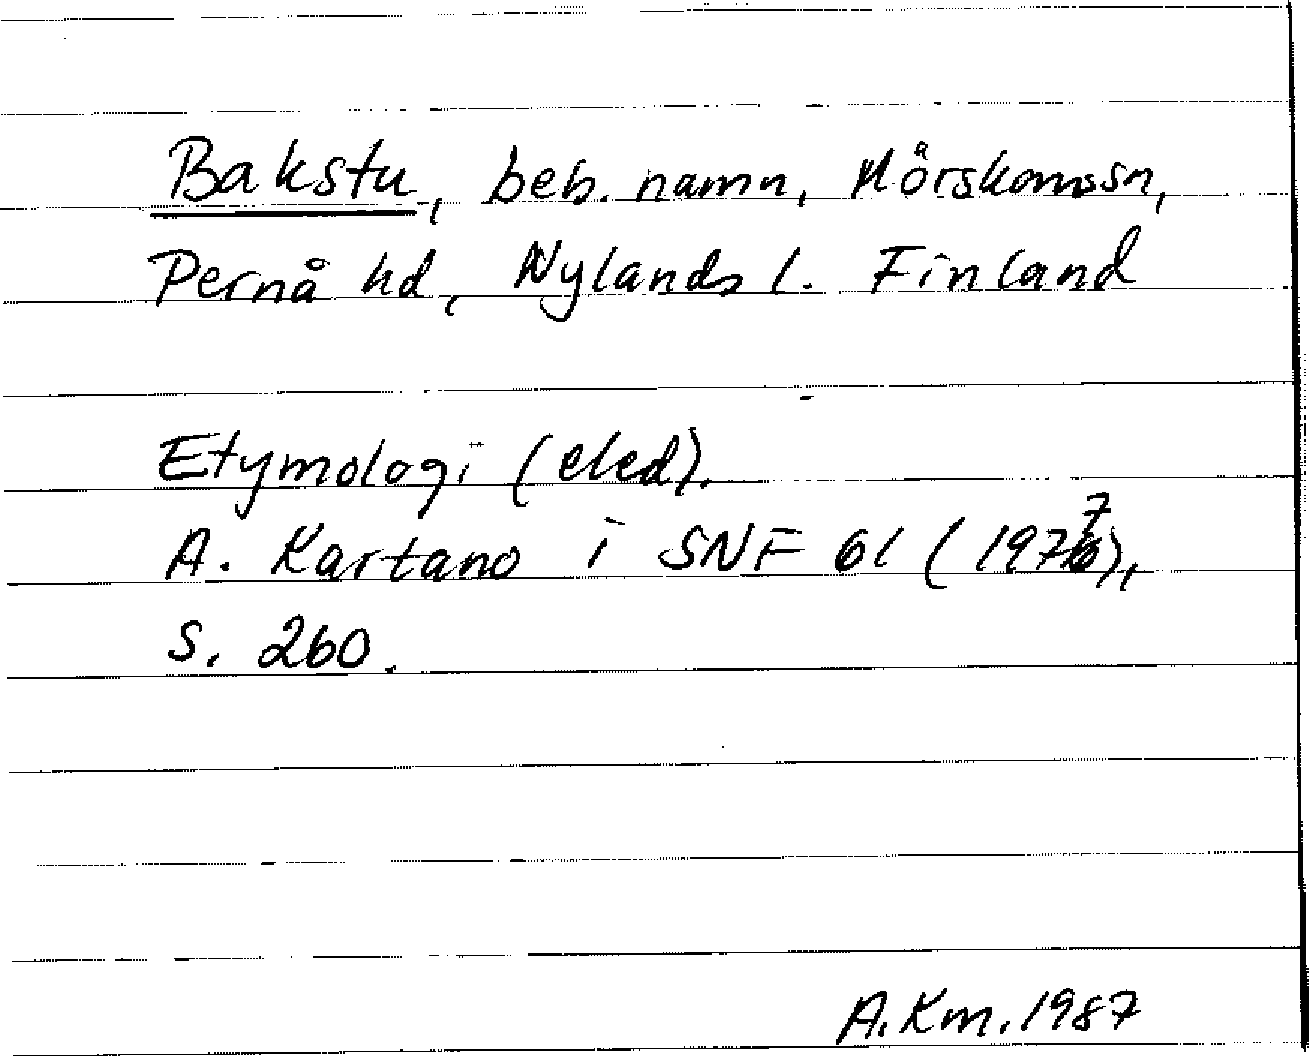 Bakstu, beb. namn, Mörskomssn,
Pernå hd, Nylands l. Finland
Etymologi (eled).
A. Kartano i SNF 61 (1977),
s. 260.
A.Km.1987